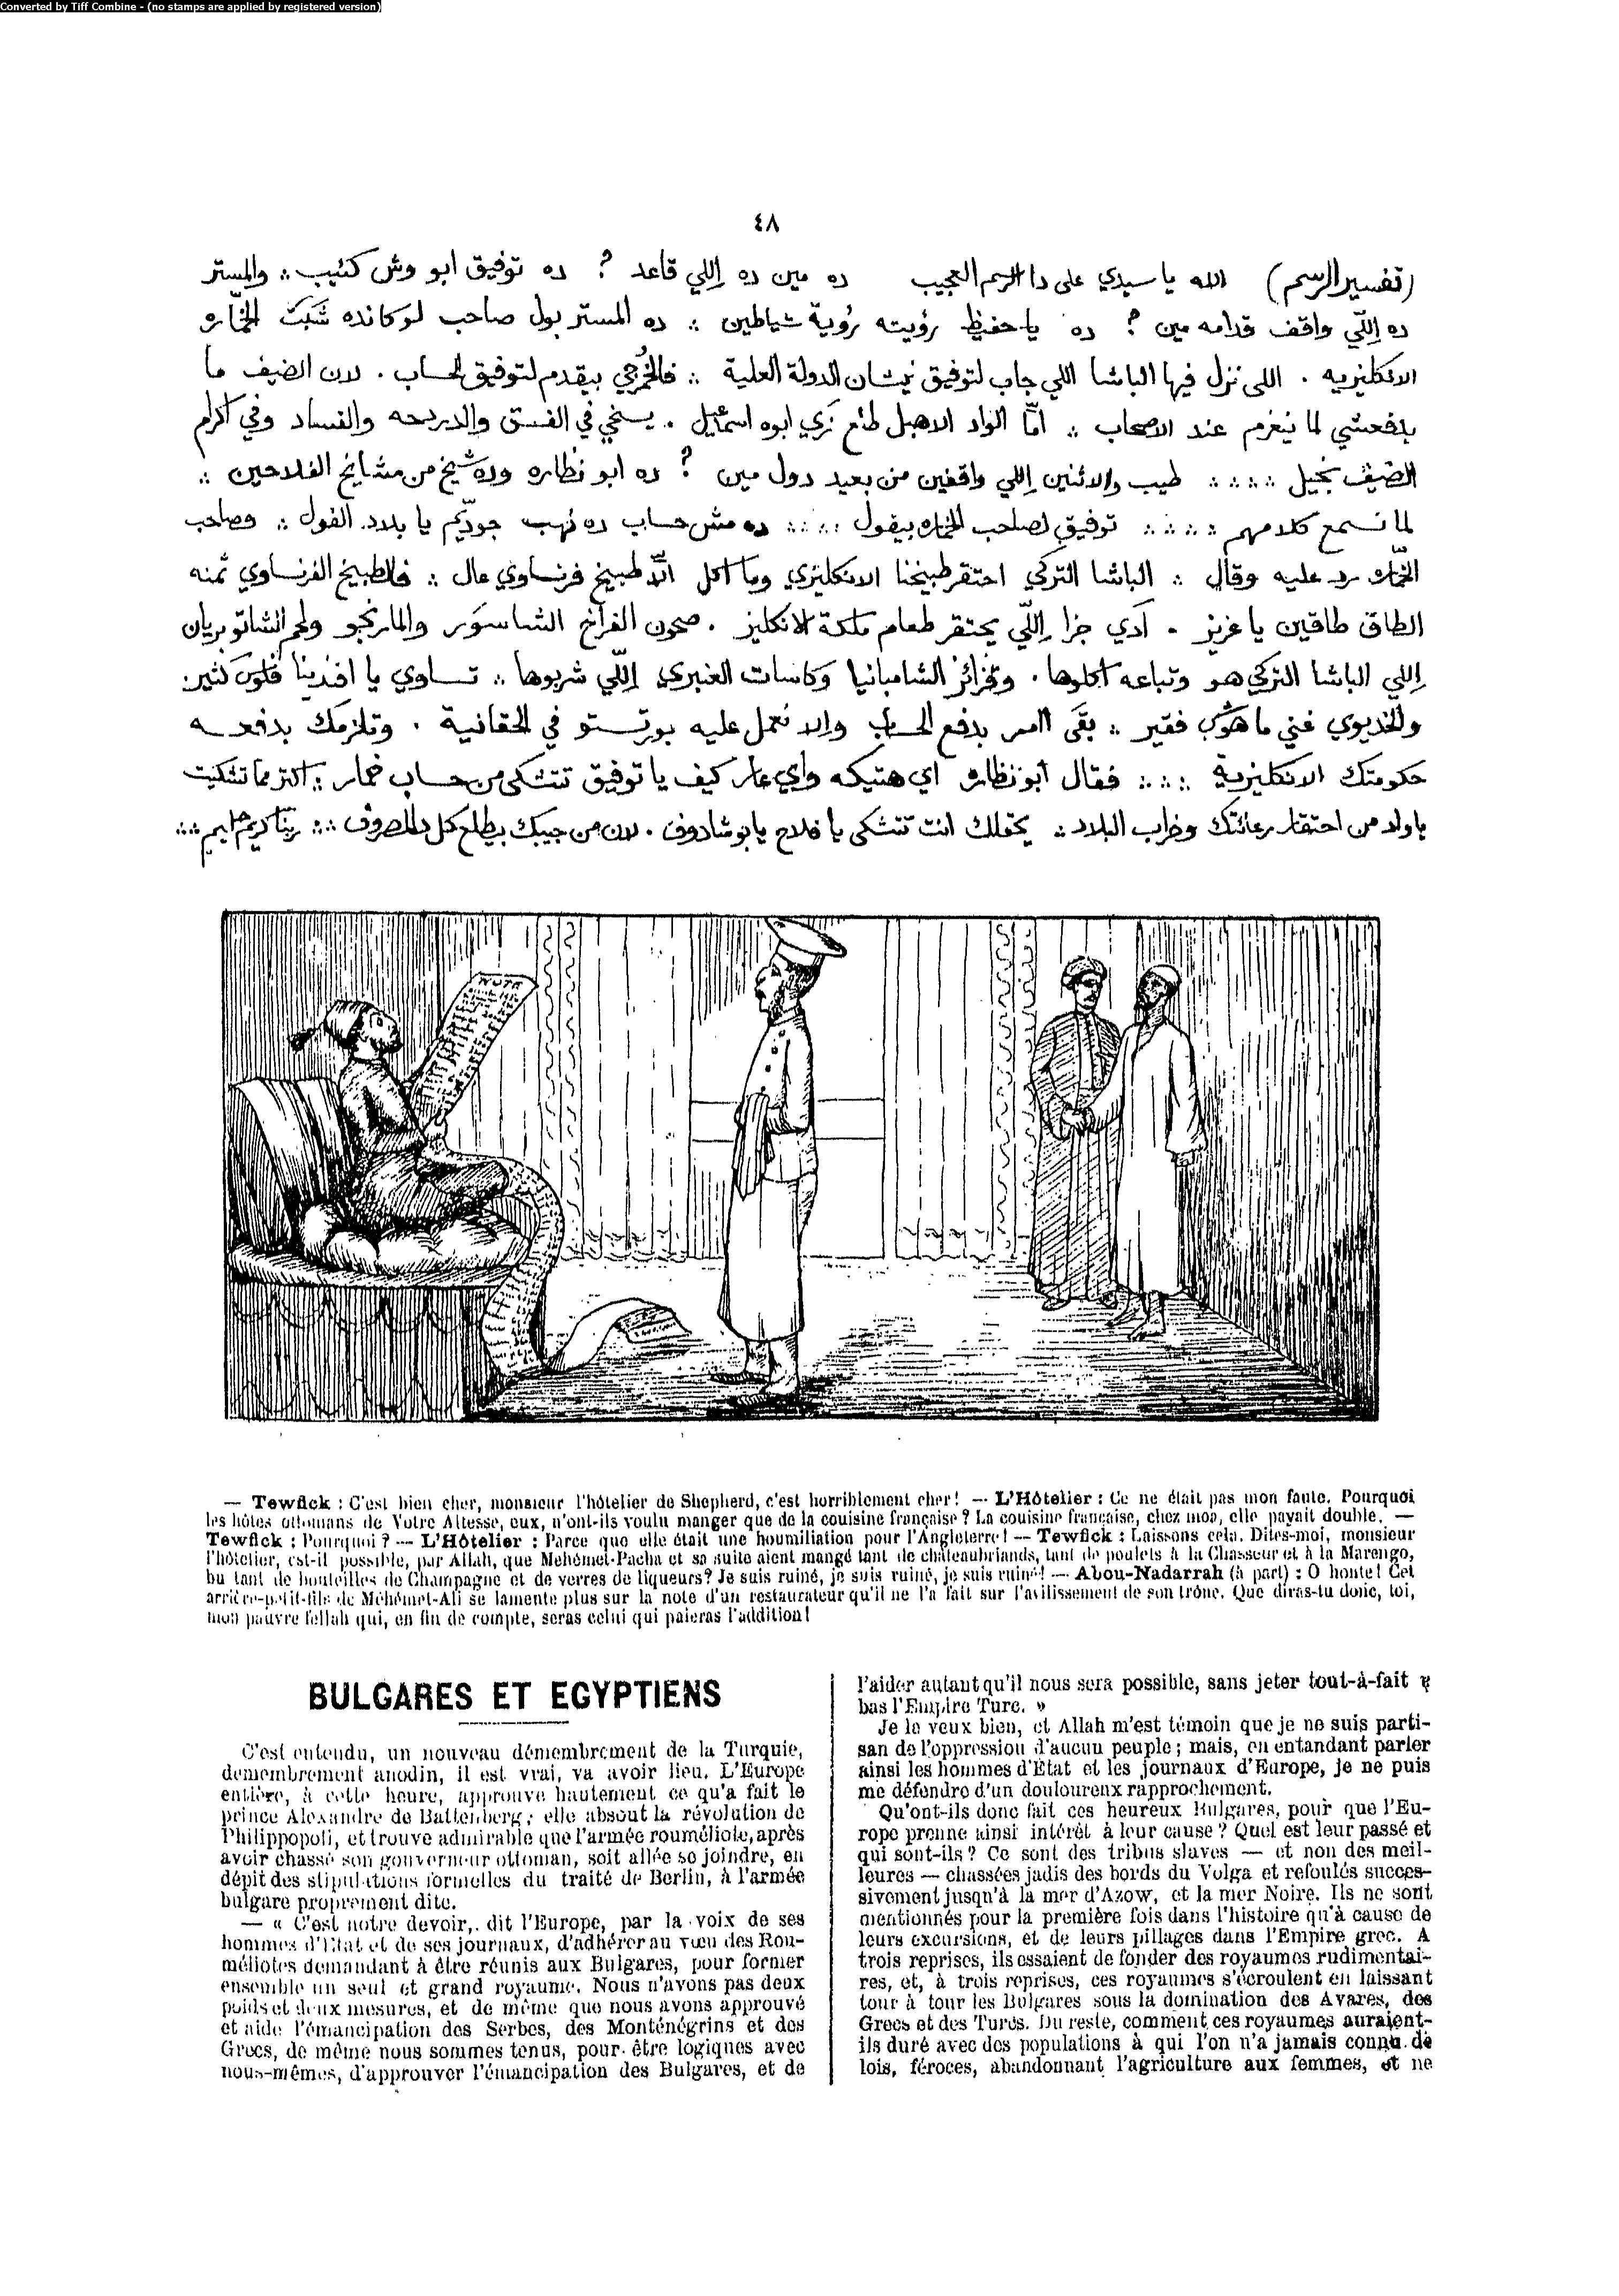 Converted by Tiff Combine - (no stamps are applied by registered version)
٤٨
(تفسير الرسم) الله يا سيدي على دا الرسم العجيب ده مين ده إللي قاعد ؟ ده توفيق ابو وش كئيب والمستر
ده إللّي واقف قدامه مين ؟ ده يا حفيظ رؤيته رؤية شياطين ده المستر بول صاحب لوكانده شبت الخمّاره
الانكليزيه . اللي نزل فيها الباشا اللي جاب لتوفيق نيشان الدولة العلية فالخمرجي بيقدم لتوفيق الحساب . لان الضيف ما
يدفعشي لما ينعزم عند الاصحاب امّا الواد الاهبل طلع زي ابوه اسماعيل . يسخي في الفسق والدردحه والفساد وفي اكرام
الضيف بخيل طيب والاثنين إللي واقفين من بعيد دول مين ؟ ده ابو نظاره وده شيخ من مشايخ الفلاحين
لما نسمع كلامهم توفيق لصاحب الخماره بيقول ده مش حساب ده نهب جوديّم يا بلاد الفول فصاحب
الخمّاره رد عليه وقال الباشا التركي احتقر طبيخنا الانكليزي وما اكل الّا طبيخ فرنساوي عال فالطبيخ الفرنساوي ثمنه
الطاق طاقين يا عزيز . آدي جزا إللّي يحتقر طعام ملكة الانكليز . صحون الفراخ الشاسور والمارنجو ولحم الشاتوبريان
إللي الباشا التركي هو وتباعه اكلوها . وقزائز الشامبانيا وكاسات العنبري إللّي شربوها تساوي يا افندينا فلوس كثير
والخديوي غني ما هوش فقير بقى اأمر بدفع الحساب والا نعمل عليه بورتستو في الحقانية . وتلزمك بدفعه
حكومتك الانكليزية فقال أبو نظاره اي هتيكه واي عار كيف يا توفيق تتشكى من حساب خمار اكثر مما تشكيت
يا ولد من احتقار رعائتك وخراب البلاد يحقلك انت تتشكى يا فلاح يابو شادوف . لان من جيبك بيطلع كل دا المصروف ربنا كريم حليم
NOTA
— Tewfick : C'est bien cher, monsieur l'hôtelier de Shepherd, c'est horriblement cher! — L'Hôtelier : Ce ne était pas mon faute. Pourquoi
les hôtes ottomans de Votre Altesse, eux, n'ont-ils voulu manger que de la couisine française ? La couisine française, chez moa, elle payait double. —
Tewfick : Pourquoi ? — L'Hôtelier : Parce que elle était une houmiliation pour l'Angleterre! — Tewfick : Laissons cela. Dites-moi, monsieur
l'hôtelier, est-il possible, par Allah, que Mehémet-Pacha et sa suite aient mangé tant de châteaubriands, tant de poulets à la Chasseur et à la Marengo,
bu tant de bouteilles de Champagne et de verres de liqueurs? Je suis ruiné, je suis ruiné, je suis ruiné! — Abou-Nadarrah (à part) : O honte! Cet
arrière-petit-fils de Méhémet-Ali se lamente plus sur la note d'un restaurateur qu'il ne l'a fait sur l'avilissement de son trône. Que diras-tu donc, toi,
mon pauvre fellah qui, en fin de compte, seras celui qui paieras l'addition!
BULGARES ET EGYPTIENS
C'est entendu, un nouveau démembrement de la Turquie,
demembrement anodin, il est vrai, va avoir lieu. L'Europe
entière, à cette heure, approuve hautement ce qu'a fait le
prince Alexandre de Battenberg; elle absout la révolution de
Philippopoli, et trouve admirable que l'armée rouméliote, après
avoir chassé son gouverneur ottoman, soit allée se joindre, en
dépit des stipulations formelles du traité de Berlin, à l'armée
bulgare proprement dite.
— « C'est notre devoir, dit l'Europe, par la voix de ses
hommes d'Etat et de ses journaux, d'adhérer au vœu des Rou-
méliotes demandant à être réunis aux Bulgares, pour former
ensemble un seul et grand royaume. Nous n'avons pas deux
poids et deux mesures, et de même que nous avons approuvé
et aide l'émancipation des Serbes, des Monténégrins et des
Grecs, de même nous sommes tenus, pour être logiques avec
nous-mêmes, d'approuver l'émancipation des Bulgares, et de
l'aider autant qu'il nous sera possible, sans jeter tout-à-fait
bas l'Empire Turc. »
Je le veux bien, et Allah m'est témoin que je ne suis parti-
san de l'oppression d'aucun peuple ; mais, en entandant parler
ainsi les hommes d'État et les journaux d'Europe, je ne puis
me défendre d'un douloureux rapprochement.
Qu'ont-ils donc fait ces heureux Bulgares, pour que l'Eu-
rope prenne ainsi intérêt à leur cause ? Quel est leur passé et
qui sont-ils ? Ce sont des tribus slaves — et non des meil-
leures — chassées jadis des bords du Volga et refoulés succes-
sivement jusqu'à la mer d'Azow, et la mer Noire. Ils ne sont
mentionnés pour la première fois dans l'histoire qu'à cause de
leurs excursions, et de leurs pillages dans l'Empire grec. A
trois reprises, ils essaient de fonder des royaumes rudimentai-
res, et, à trois reprises, ces royaumes s'écroulent en laissant
tour à tour les Bulgares sous la domination des Avares, des
Grecs et des Turcs. Du reste, comment ces royaumes auraient-
ils duré avec des populations à qui l'on n'a jamais connu de
lois, féroces, abandonnant l'agriculture aux femmes, et ne